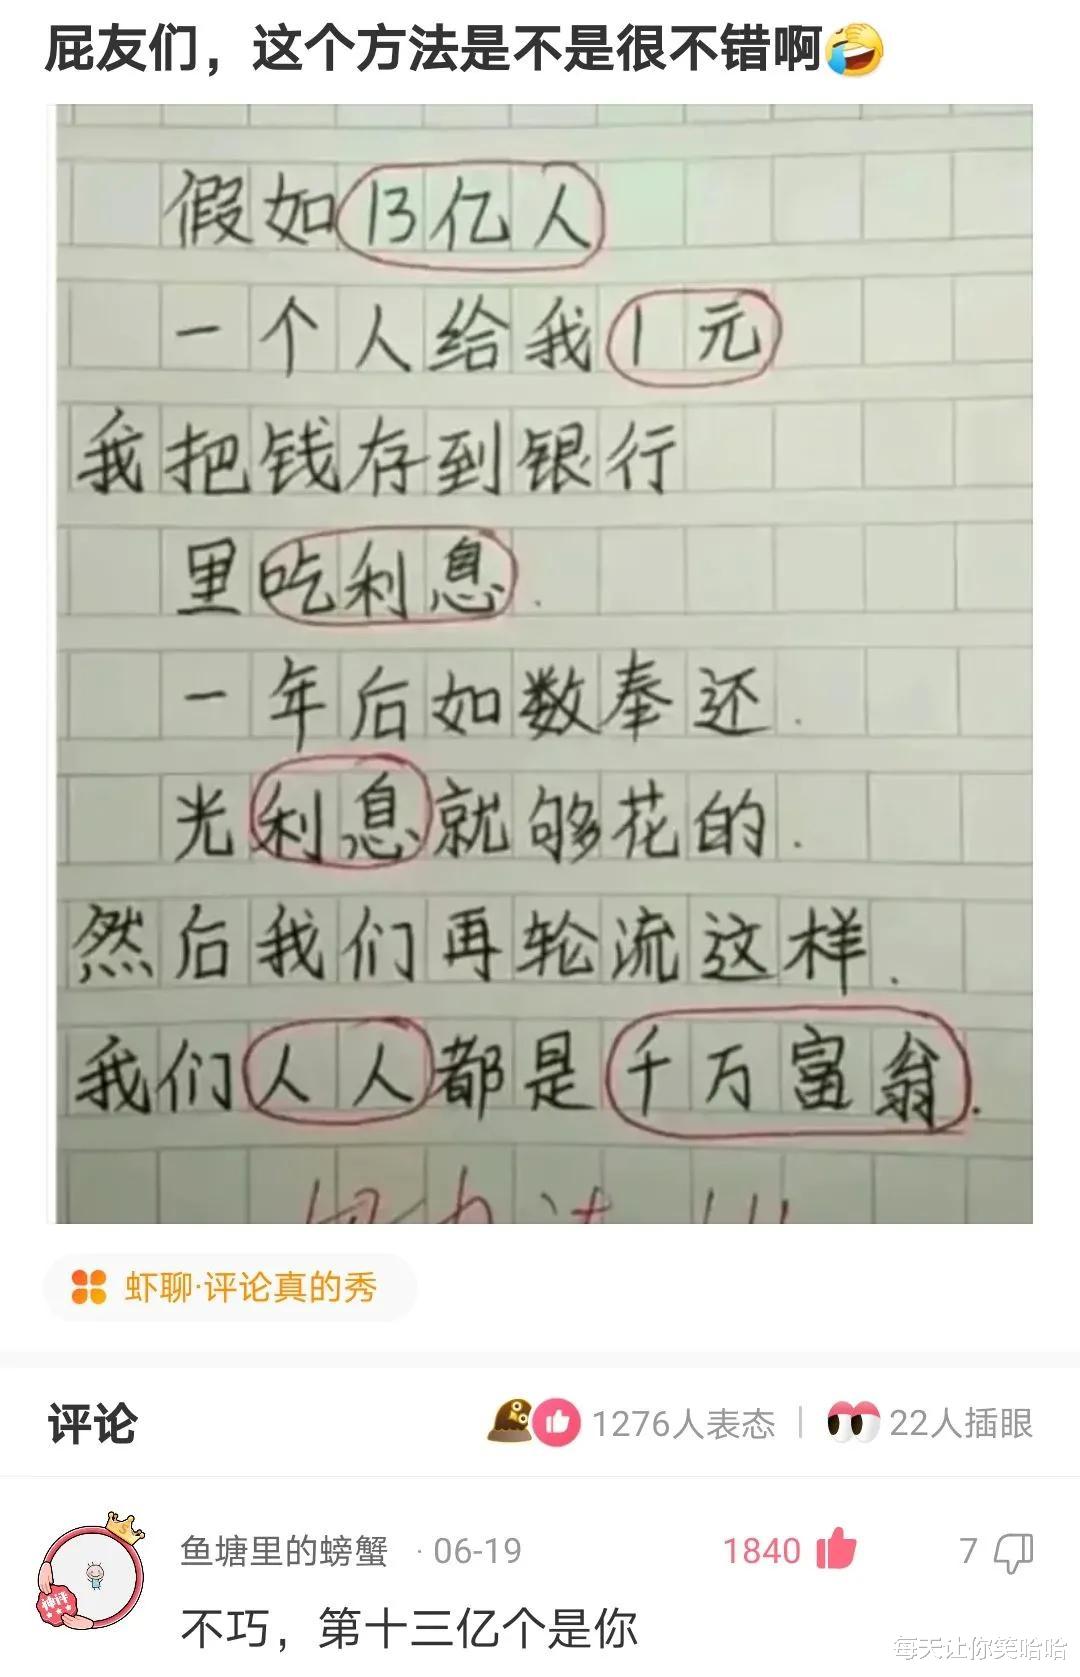 屁友们，这个方法是不是很不错啊
假如13亿人
一个人给我1元
我把钱存到银行
里吃利息.
一年后如数奉还.
光利息就够花的.
然后我们再轮流这样.
我们人人都是千万富翁.
虾聊·评论真的秀
评论
1276人表态
22人插眼
鱼塘里的螃蟹 · 06-19
1840
7
神评
不巧，第十三亿个是你
每天让你笑哈哈